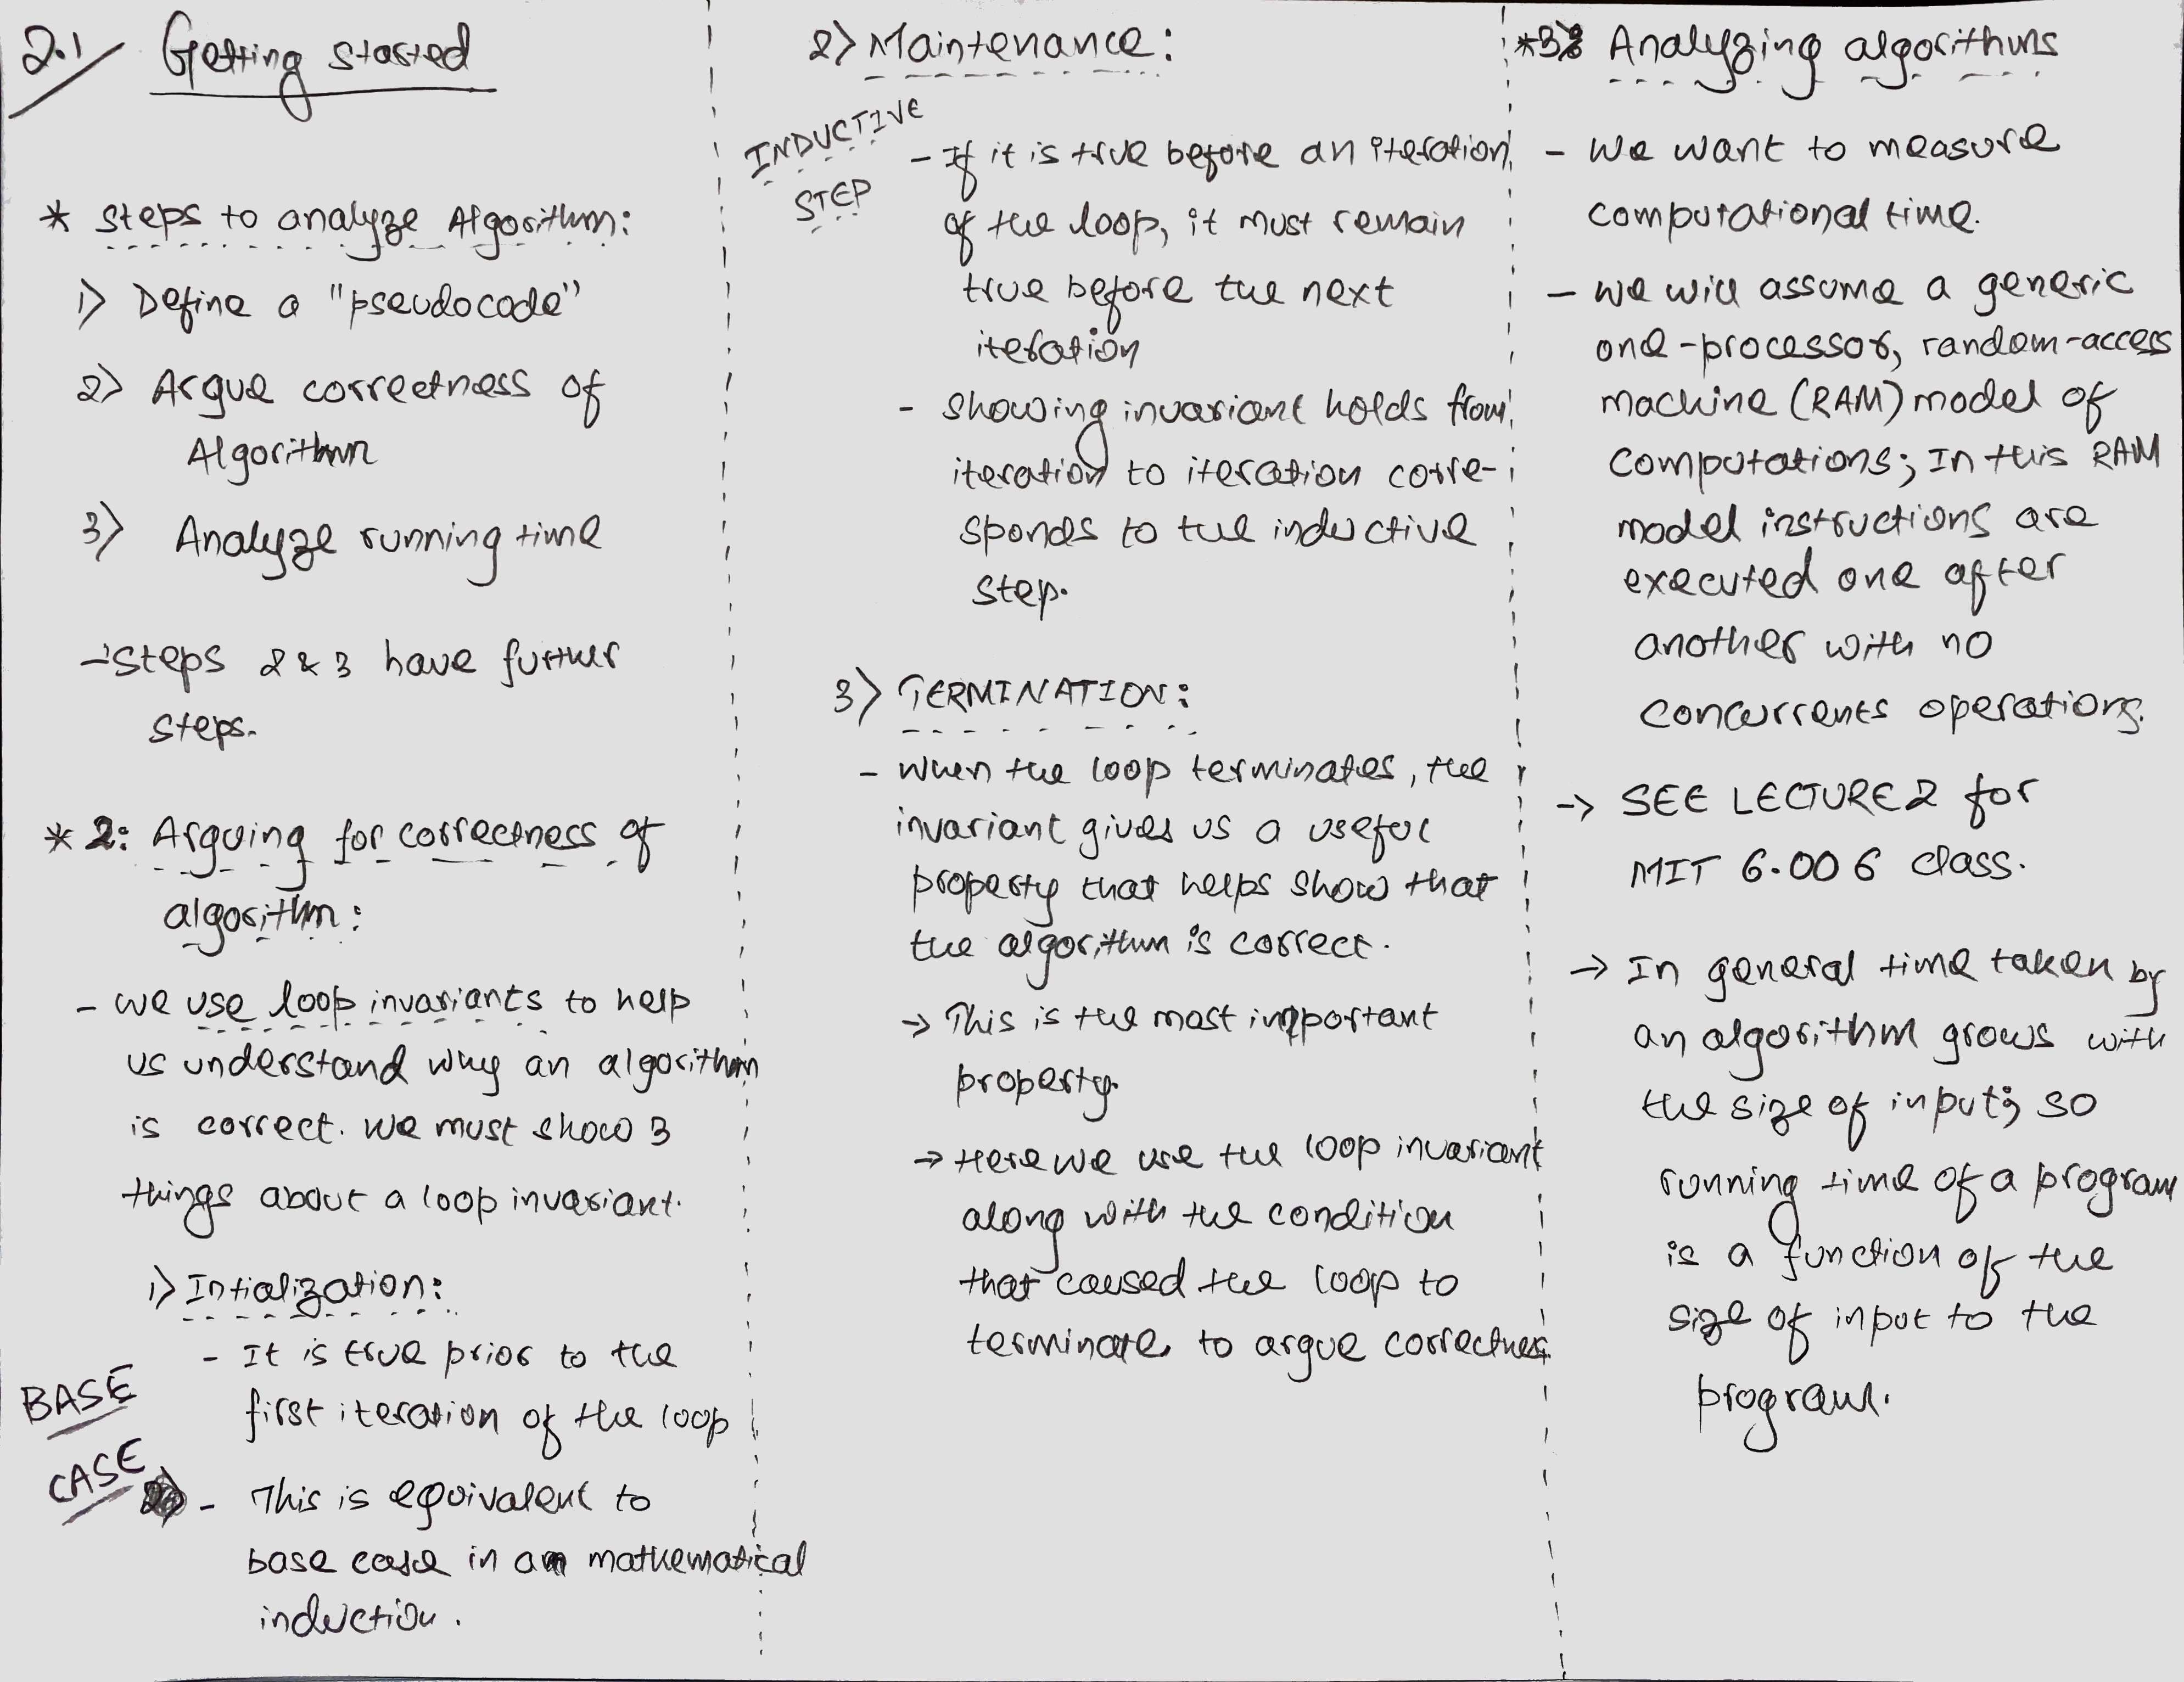 2.1 Getting started
* Steps to analyze Algorithm:
1) Define a "pseudocode"
2) Argue correctness of
Algorithm
3) Analyze running time
→ Steps 2 & 3 have further
steps.
* 2: Arguing for correctness of
algorithm:
- We use loop invariants to help
us understand why an algorithm
is correct. We must show 3
things about a loop invariant.
1) Intialization:
- It is true prior to the
first iteration of the loop
BASE
CASE
- This is equivalent to
base case in an mathematical
induction.
2) Maintenance:
INDUCTIVE
STEP
- If it is true before an iteration
of the loop, it must remain
true before the next
iteration
- Showing invariant holds from
iteration to iteration corre-
sponds to the inductive
step.
3) TERMINATION:
- When the loop terminates, the
invariant gives us a useful
property that helps show that
the algorithm is correct.
→ This is the most important
property.
→ Here we use the loop invariant
along with the condition
that caused the loop to
terminate, to argue correctness
*3: Analyzing algorithms
- We want to measure
computational time.
- We will assume a generic
one-processor, random-access
machine (RAM) model of
computations; In this RAM
model instructions are
executed one after
another with no
concurrents operations.
→ SEE LECTURE 2 for
MIT 6.006 class.
→ In general time taken by
an algorithm grows with
the size of input; so
running time of a program
is a function of the
size of input to the
program.